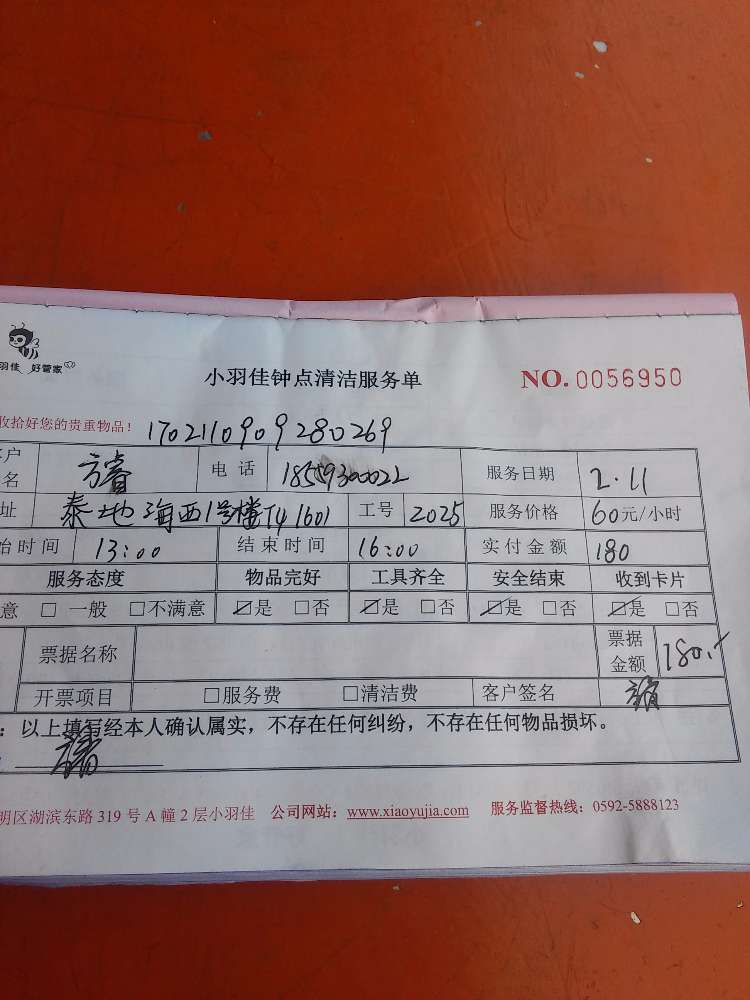 羽佳 好管家
小羽佳钟点清洁服务单 NO. 0056950
收拾好您的贵重物品! 1702110909280269
客户名 方睿 电话 18559300022 服务日期 2.11
址 泰地海西1号楼T4 1601 工号 2025 服务价格 60元/小时
始时间 13:00 结束时间 16:00 实付金额 180
服务态度 物品完好 工具齐全 安全结束 收到卡片
意 □ 一般 □不满意 ☑是 □否 ☑是 □否 ☑是 □否 ☑是 □否
票据名称 票据金额 180.-
开票项目 □服务费 □清洁费 客户签名 方睿
: 以上填写经本人确认属实,不存在任何纠纷,不存在任何物品损坏。
: 方睿
明区湖滨东路 319 号 A 幢 2 层小羽佳 公司网站: www.xiaoyujia.com 服务监督热线: 0592-5888123